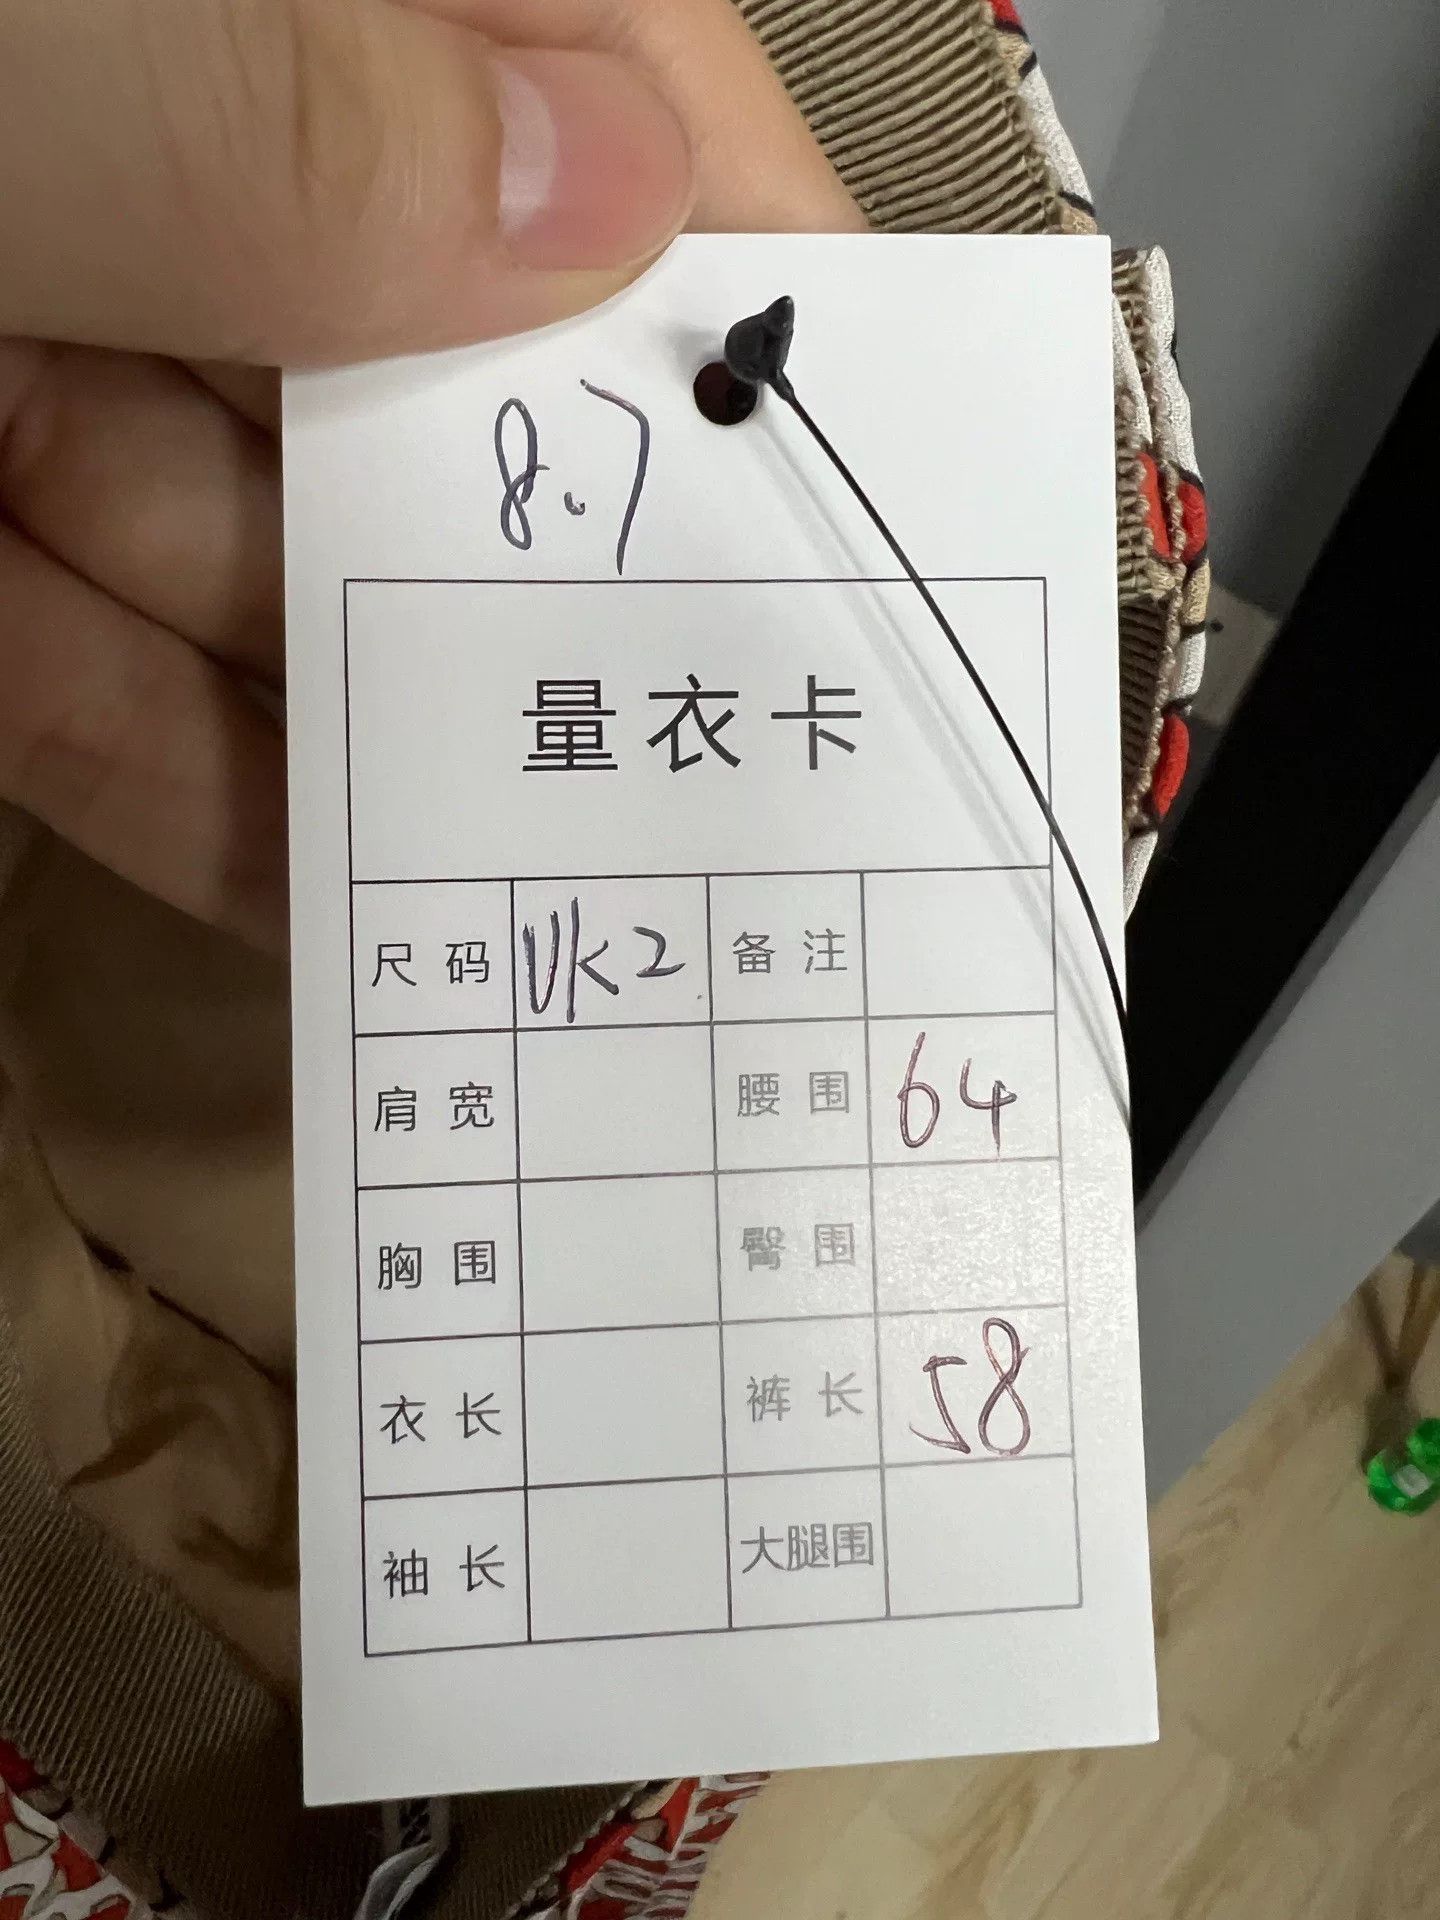 8.7
量衣卡
尺码 UK2 备注
肩宽 腰围 64
胸围 臀围
衣长 裤长 58
袖长 大腿围